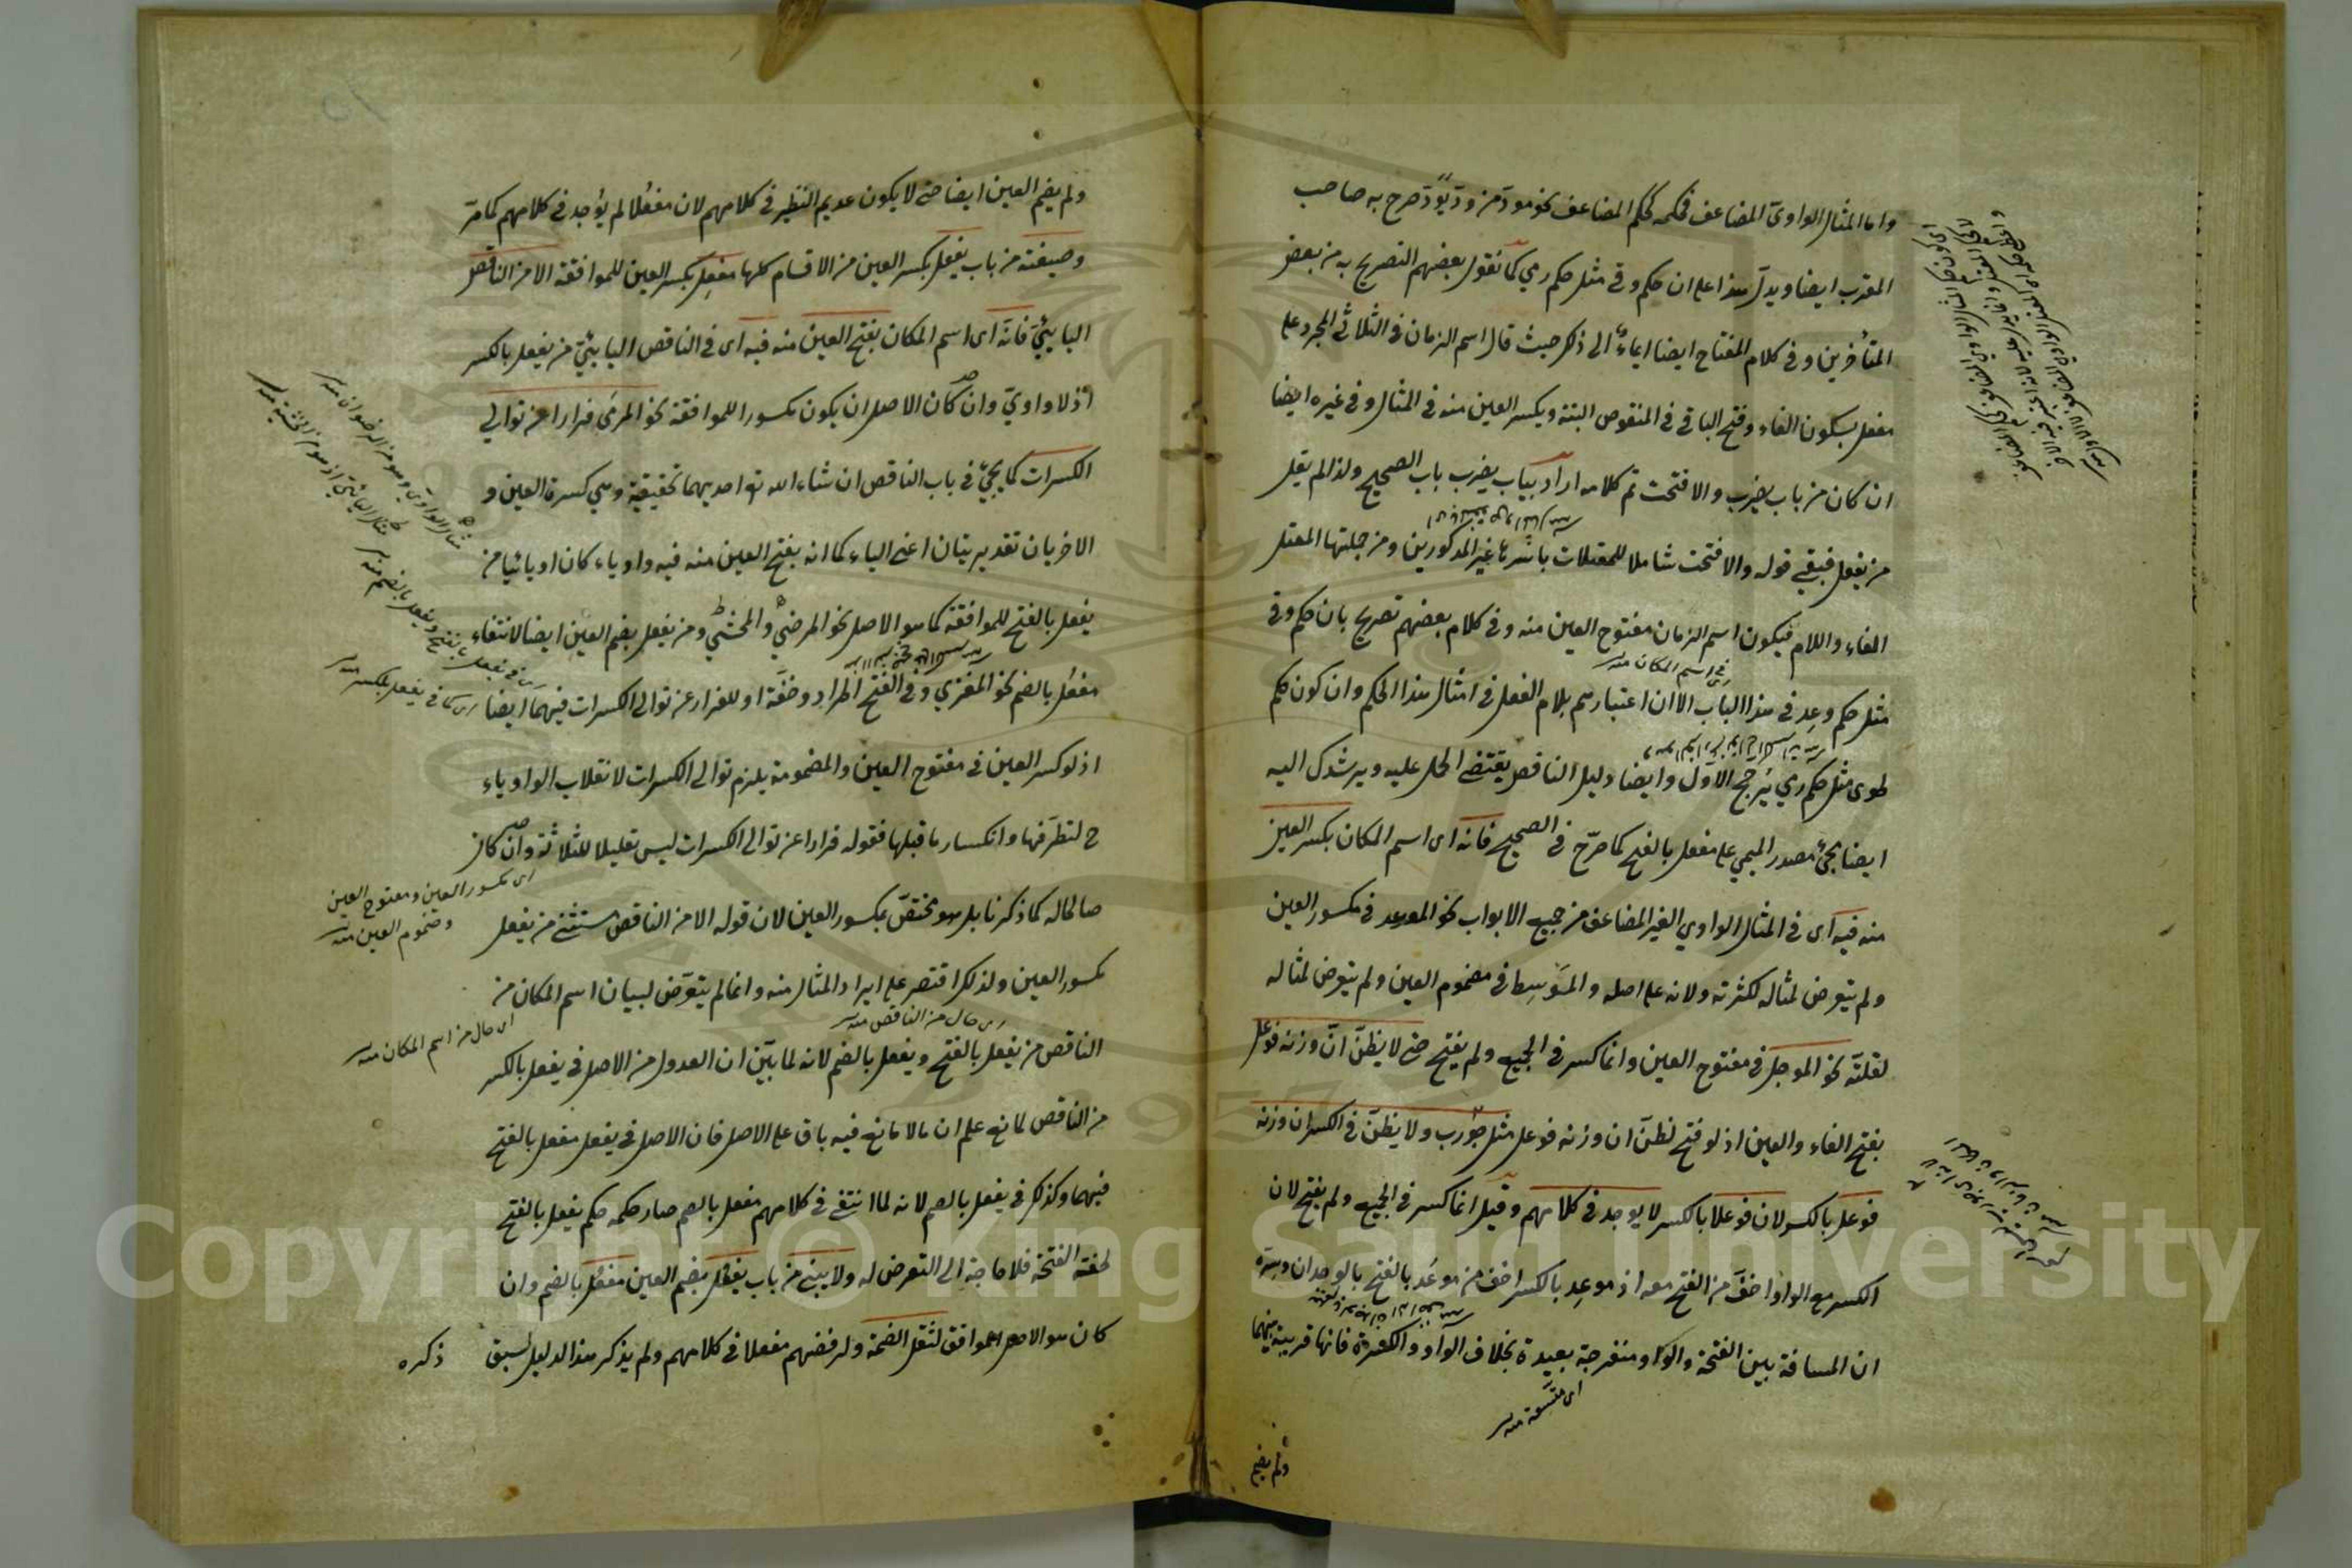 واما المثال الواوي المضاعف فحكمه كحكم المضاعف نحو مودّ من ودّ يودّ صرح به صاحب
المقرب ايضا ويدل هذا على ان حكم وقى مثل حكم رمى كما نقول بعضهم التصريح به من بعض
المتأخرين وفى كلام المفتاح ايضا ايماء الى ذكر حيث قال اسم الزمان فى الثلاثي المجرد على
مفعل بسكون الفاء وفتح الباقى فى المنقوص البتة وبكسر العين منه فى المثال وفى غيره ايضا
ان كان من باب يضرب والا فتحت تم كلامه اراد بباب يضرب باب الصحيح ولذا لم يقل
من يفعل فبقى قوله والا فتحت شاملا للمعتلات باسرها غير المذكورين ومن جملتها المعتل
الفاء واللام فيكون اسم الزمان مفتوح العين منه وفى كلام بعضهم تصريح بان حكم وقى
فى اسم المكان منه
مثل حكم وعد فى هذا الباب الا ان اعتبارهم بلام الفعل فى امثال هذا الحكم وان كون حكم
طوى مثل حكم رمى يرجح الاول وايضا دليل الناقص يقتضى الحمل عليه ويرشدك اليه
ايضا مجئ مصدر الميمي على مفعل بالفتح كما صرّح فى الصحيح فانه اى اسم المكان بكسر العين
منه فيه اى فى المثال الواوي الغير المضاعف من جميع الابواب نحو الموعد فى مكسور العين
ولم يتعرض لمثاله لكثرته ولانه على اصله والموسط فى مضموم العين ولم يتعرض لمثاله
لقلته نحو الموجل فى مفتوح العين وانما كسر فى الجميع ولم يفتح حتى لا يظنّ انّ وزنه فوعل
بفتح الفاء والعين اذ لو فتح لظنّ ان وزنه فوعل مثل جورب ولا يظنّ فى الكسر ان وزنه
فوعل بالكسر لان فوعلا بالكسر لا يوجد فى كلامهم وقيل انما كسر فى الجميع ولم يفتح لان
الكسر مع الواو اخفّ من الفتح معه اذ موعِد بالكسر اخف من موعَد بالفتح بالوجدان وسرّه
ان المسافة بين الفتحة والواو منفرجة بعيدة بخلاف الواو والكسرة فانها قريبة بينهما
اى متسعة منه
ولم يضم
ولم يضم العين ايضا حتى لا يكون عديم النظير فى كلامهم لان مفعُلا لم يوجد فى كلامهم كما مرّ
وصيغته من باب يفعِل بكسر العين من الاقسام كلها مفعِل بكسر العين للموافقة الا من الناقص
اليائيّ فانّه اى اسم المكان بفتح العين منه فيه اى فى الناقص اليائيّ من يفعل بالكسر
اذ لا واويّ وان كان الاصل ان يكون مكسورا للموافقة نحو المرمَى فرارا عن توالي
الكسرات كما يجئ فى باب الناقص ان شاء الله تع احديهما تحقيقية وهى كسرة العين و
الاخريان تقديريتان اعنى الياء كما انه بفتح العين منه فيه واويا كان او يائيا من
يفعل بالفتح للموافقة كما هو الاصل نحو المرضي والمخشي ومن يفعل بضم العين ايضا لانتفاء
مفعُل بالضم نحو المغزي وفى الفتح اطراد وخفّة او للفرار عن توالى الكسرات فيهما ايضا
اى كما فى يفعل بالكسر منه
اذ لو كسر العين فى مفتوح العين والمضمومة يلزم توالى الكسرات لانقلاب الواو ياء
ح لتطرّفها وانكسار ما قبلها فقوله فرارا عن توالى الكسرات ليس تعليلا للثلاثة وان كان
اى مكسور العين ومفتوح العين
ومضموم العين منه
صالحا له كما ذكرنا بل هو مختصّ بمكسور العين لان قوله الا من الناقص مستثنى من يفعل
مكسور العين ولذلك اقتصر على ايراد المثال منه وانما لم يتعرّض لبيان اسم المكان من
اى حال من الناقص منه
اى حال من اسم المكان منه
الناقص من يفعل بالفتح ويفعل بالضم لانه لما بيّن ان العدول من الاصل فى يفعل بالكسر
من الناقص لمانع علم ان ما لا مانع فيه باق على الاصل فان الاصل فى يفعل مفعل بالفتح
فيهما وكذلك فى يفعل بالضم لانه لما انتفى فى كلامهم مفعل بالضم صار حكمه حكم يفعل بالفتح
لخفة الفتحة فلا حاجة الى التعرض له ولا يبنى من باب يفعُل بضم العين مفعُل بالضم وان
كان هو الاصل الموافق لثقل الضمة ولرفضهم مفعلا فى كلامهم ولم يذكر هذا الدليل لسبق
ذكره
Copyright © King Saud University